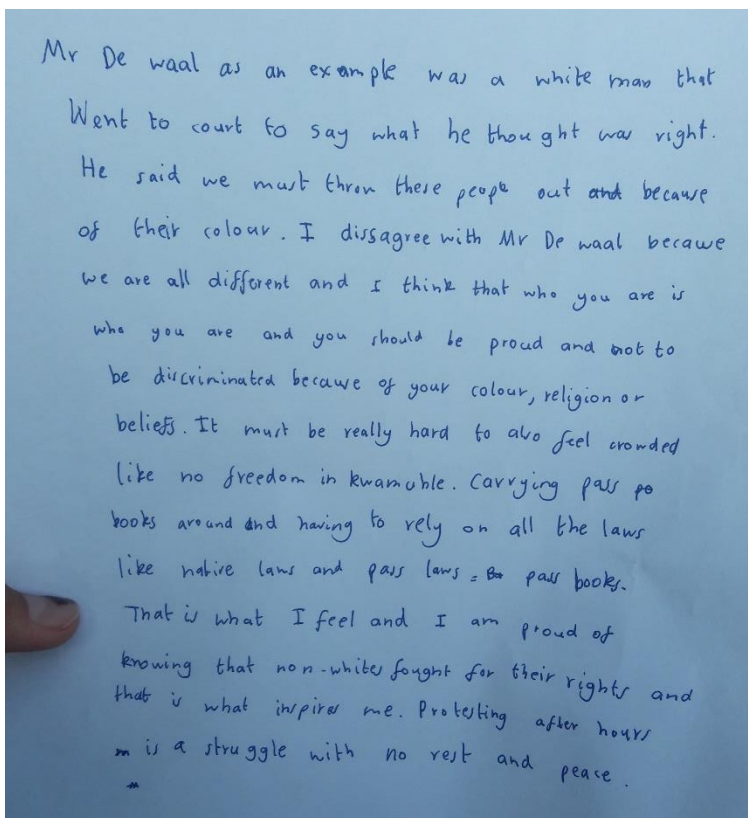 Mr De waal as an example was a white man that
Went to court to say what he thought was right.
He said we must throw these people out and because
of their colour. I dissagree with Mr De waal because
we are all different and I think that who you are is
who you are and you should be proud and not to
be discriminated because of your colour, religion or
beliefs. It must be really hard to also feel crowded
like no freedom in kwamuhle. Carrying pass po
books around and having to rely on all the laws
like native laws and pass laws = pass books.
That is what I feel and I am proud of
knowing that non-whites fought for their rights and
that is what inspires me. Protesting after hours
is a struggle with no rest and peace.